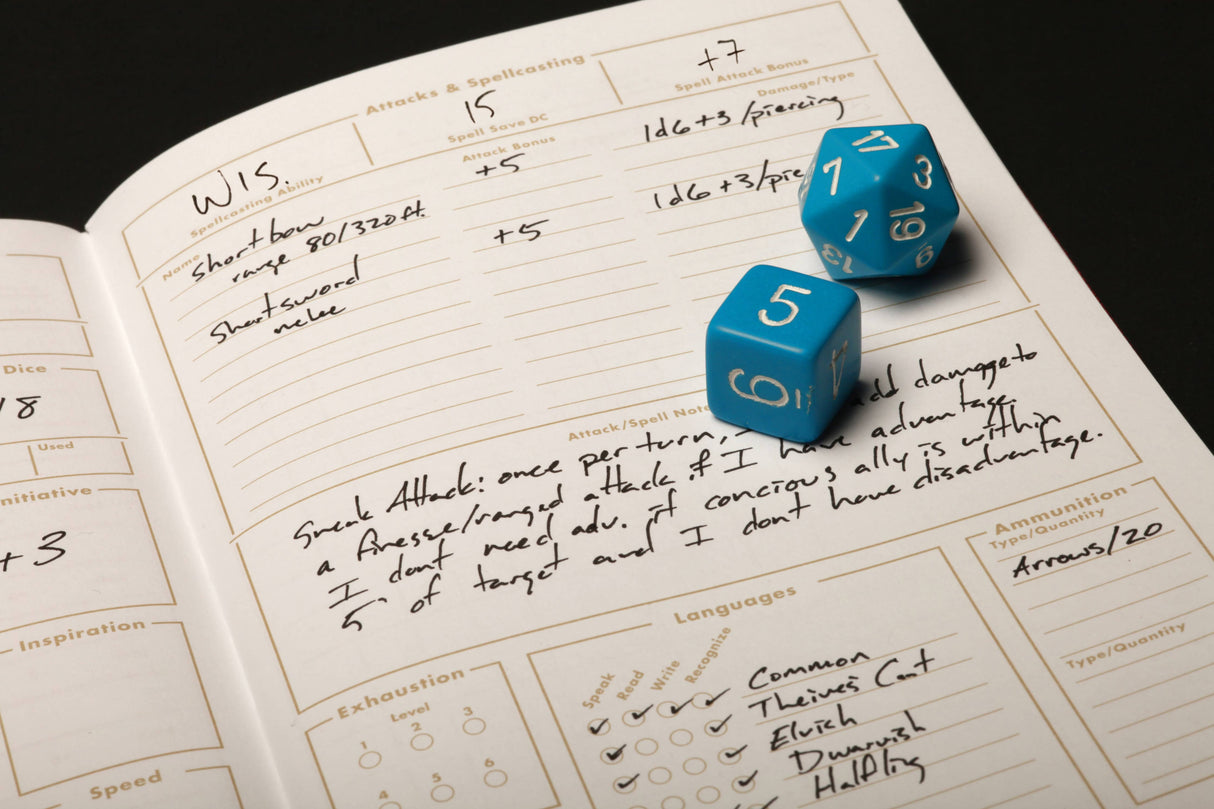 Attacks & Spellcasting
WIS.
Spellcasting Ability
15
Spell Save DC
+7
Spell Attack Bonus
Name
Attack Bonus
Damage/Type
Shortbow
range 80/320ft.
+5
1d6+3/piercing
Shortsword
melee
+5
1d6+3/pie
17
7
3
1
19
13
9
5
6
Dice
18
Used
nitiative
+3
Inspiration
Speed
Attack/Spell Not
Sneak Attack: once per turn, add damage to
a finesse/ranged attack if I have advantage.
I dont need adv. if concious ally is within
5' of target and I dont have disadvantage.
Exhaustion
Level
1
2
3
4
5
6
Languages
Speak
Read
Write
Recognize
Common
Theives Cant
Elvish
Dwarvish
Halfling
Ammunition
Type/Quantity
Arrows/20
Type/Quantity